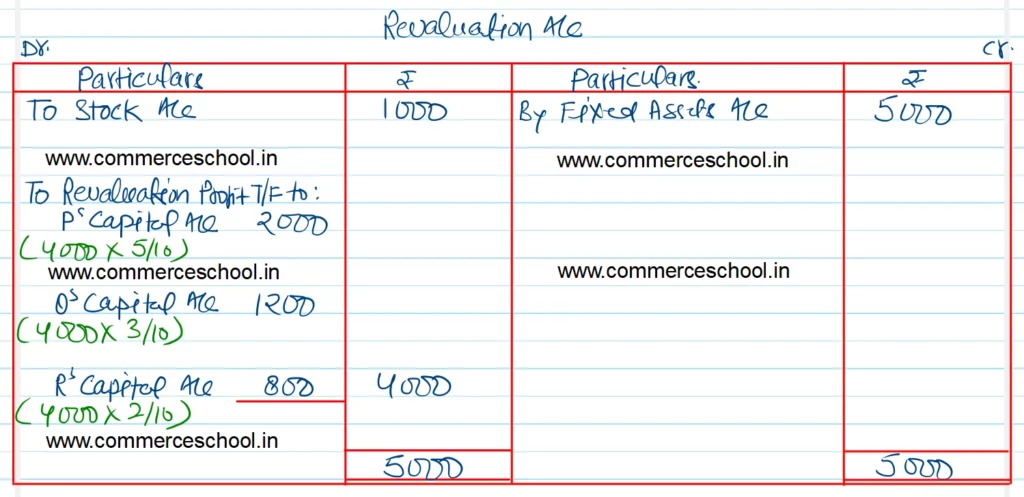 Revaluation A/c
Dr. Cr.
Particulars ₹ Particulars. ₹
To Stock A/c 1000 By Fixed Assets A/c 5000
www.commerceschool.in www.commerceschool.in
To Revaluation Profit T/F to:
P's Capital A/c 2000
(4000 × 5/10)
www.commerceschool.in www.commerceschool.in
Q's Capital A/c 1200
(4000 × 3/10)
R's Capital A/c 800 4000
(4000 × 2/10)
www.commerceschool.in
5000 5000